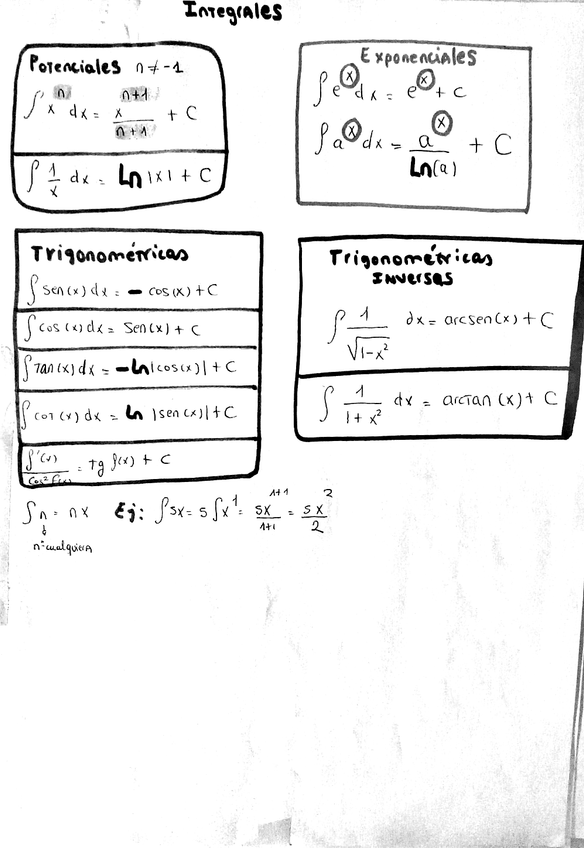 Integrales
Potenciales n ≠ -1
∫ x^n dx = x^(n+1)/(n+1) + C
∫ 1/x dx = Ln |x| + C
Exponenciales
∫ e^x dx = e^x + c
∫ a^x dx = a^x/Ln(a) + C
Trigonométricas
∫ sen(x) dx = - cos(x) + C
∫ cos(x) dx = Sen(x) + C
∫ Tan(x) dx = -Ln|cos(x)| + C
∫ cot(x) dx = Ln |sen(x)| + C
f'(x)/cos² f(x) = Tg f(x) + C
Trigonométricas
Inversas
∫ 1/√(1-x²) dx = arcsen(x) + C
∫ 1/(1+x²) dx = arctan(x) + C
∫ n = nx Ej: ∫ 5x = 5 ∫ x^1 = 5x^(1+1)/(1+1) = 5x^2/2
↓
nº cualquiera